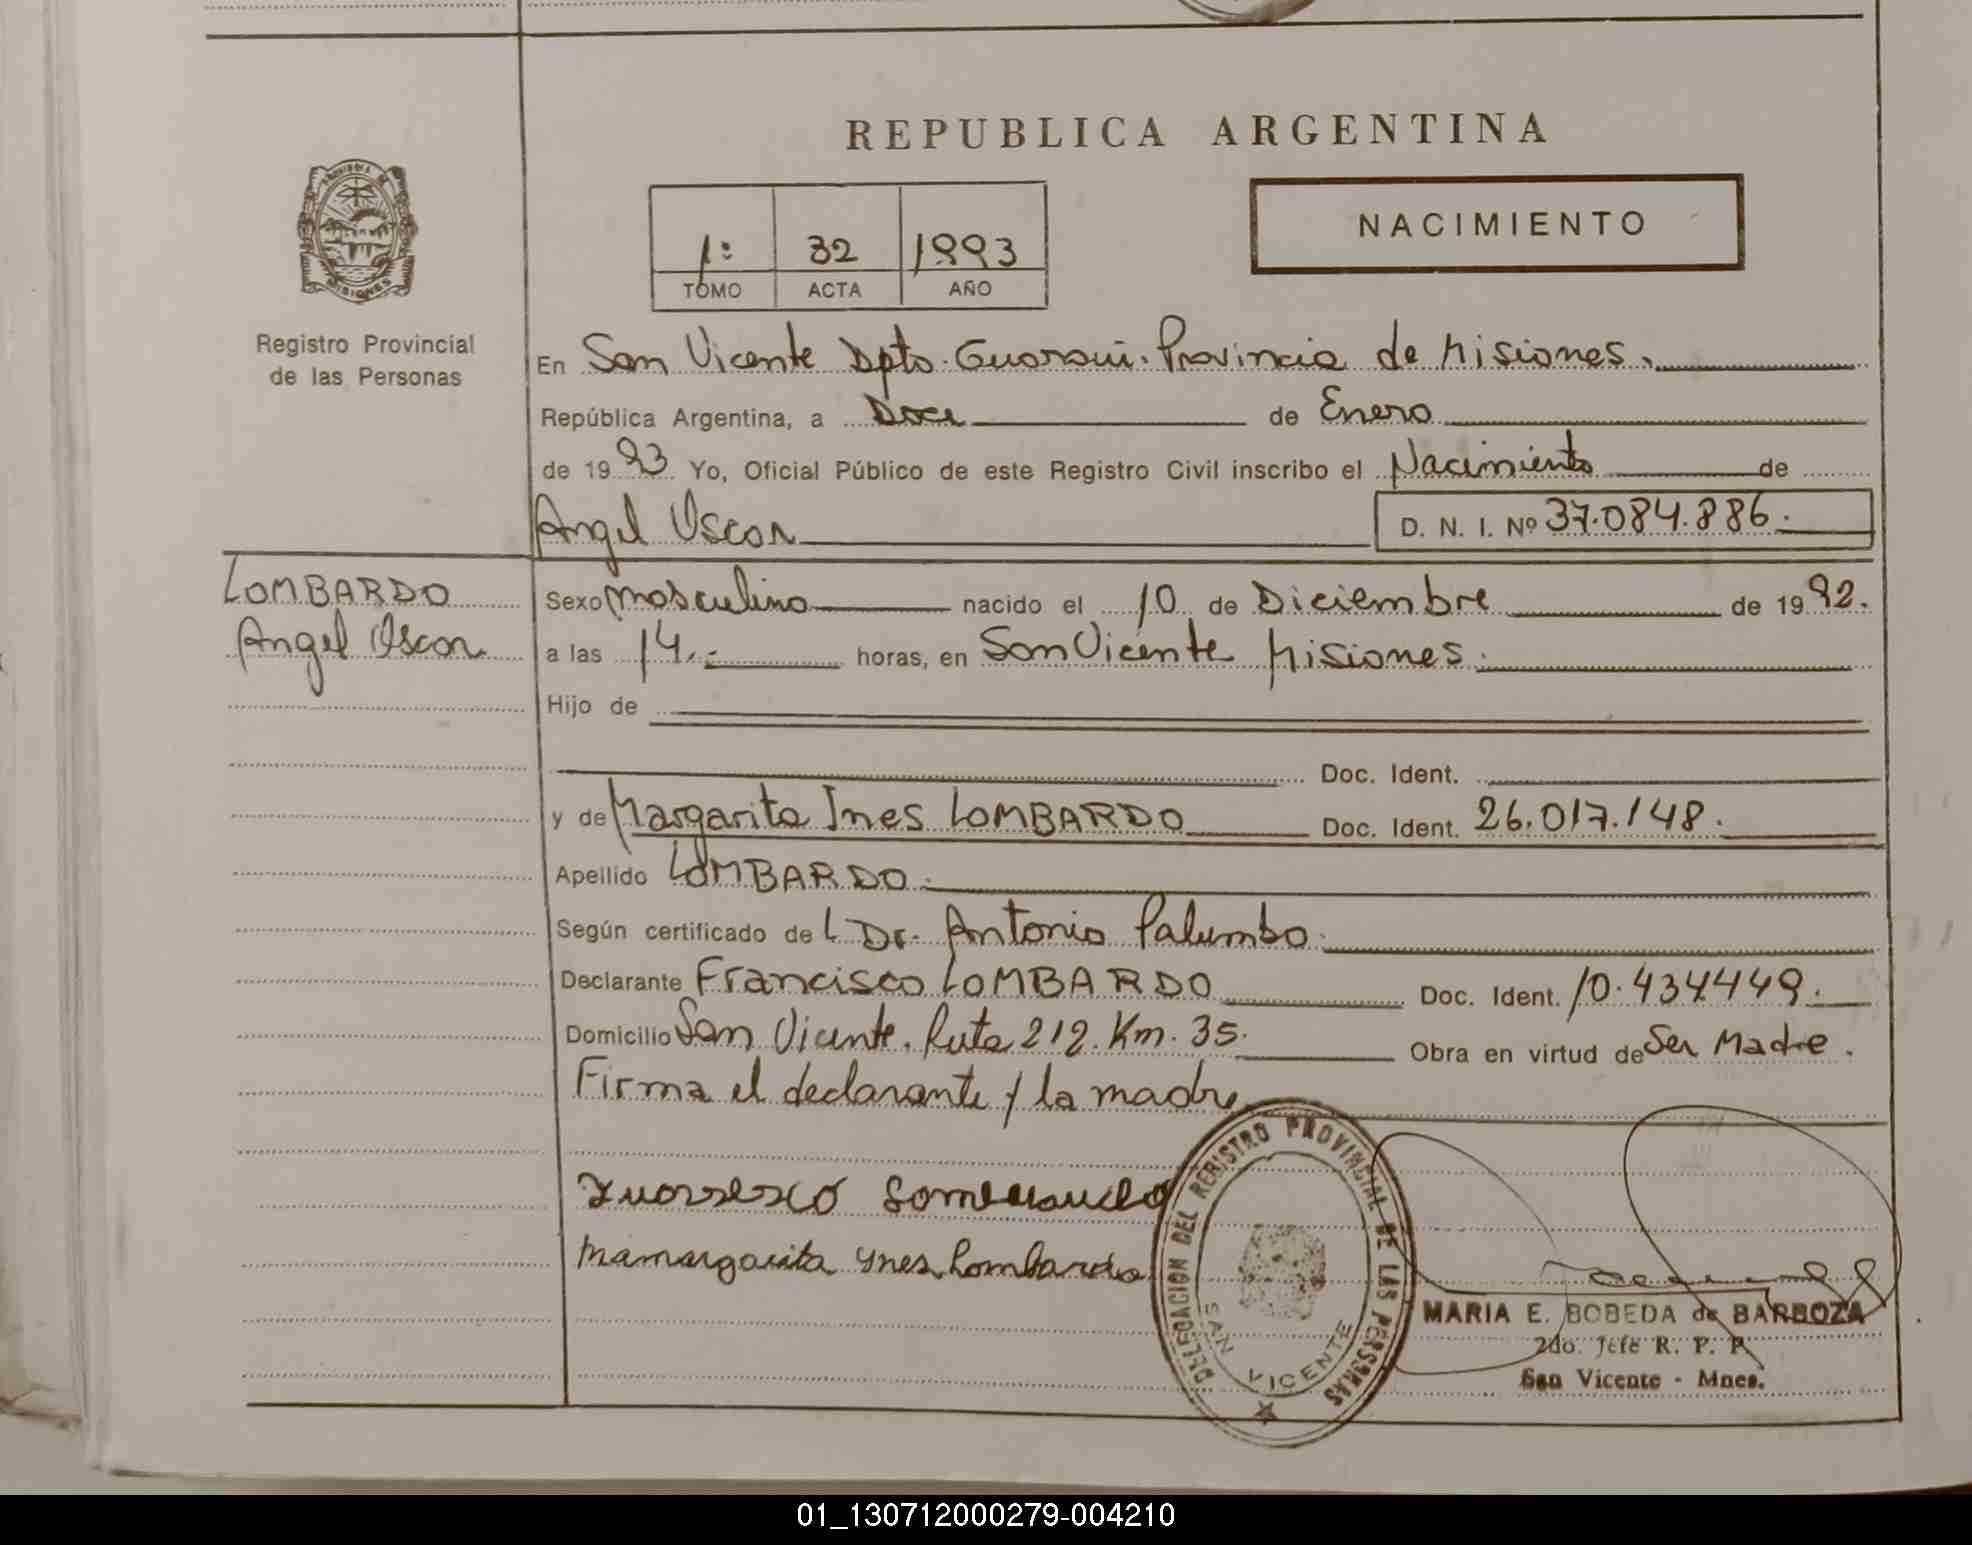 REPUBLICA ARGENTINA
NACIMIENTO
1º 32 1993
TOMO ACTA AÑO
Registro Provincial
de las Personas
En San Vicente Dpto. Guarani. Provincia de Misiones.
República Argentina, a Doce de Enero
de 1993 Yo, Oficial Público de este Registro Civil inscribo el Nacimiento de
Angel Oscar D. N. I. Nº 37.084.886.
LOMBARDO
Angel Oscar
Sexo masculino nacido el 10 de Diciembre de 1992.
a las 14.- horas, en San Vicente Misiones.
Hijo de
Doc. Ident.
y de Margarita Ines LOMBARDO Doc. Ident. 26.017.148.
Apellido LOMBARDO.
Según certificado de L Dr. Antonio Palumbo.
Declarante Francisco LOMBARDO Doc. Ident. 10.434449.
Domicilio San Vicente. Ruta 212. Km. 35. Obra en virtud de Ser Madre.
Firma el declarante y la madre
Mamargarita Ynes Lombardo
DELEGACION DEL REGISTRO PROVINCIAL DE LAS PERSONAS
SAN VICENTE
MARIA E. BOBEDA de BARBOZA
2do. Jefe R. P. P.
San Vicente - Mnes.
01_130712000279-004210